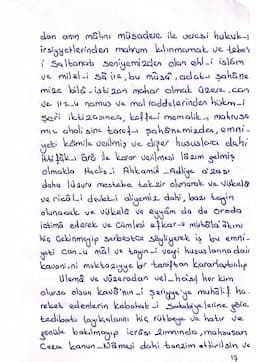 dan anın malını müsadere ile veresi hukuk-ı
irsiyyetlerinden mahrum kılınmamak ve tebe'-i
Saltanatı seniyemizden olan ehl-i islâm
ve milel-i sâ ile, bu müsâ, adat-ı şahâne
mize bilâ-istizan mahar olmak üzere, can
ve ırz-u namus ve mal raddelerinden hükm-i
şeri iktizasınca, kaffe-i memalik-i mahruse
miz ahalisine taraf-ı şahânemizden, emni-
yeti kâmile verilmiş ve diğer hususlara dahi
ittifâk-ı ârâ ile karar verilmesi lâzım gelmiş
olmakla Meclis-i Ahkâmıd-Adliye a'zası
daha lüzuru mestebe takzir olunarak ve vükelâ
ve ricâl-i devlet-i aliyemiz dahi, bazı tayin
olunacak ve vükelâ ve eyyâm da da orada
istimâ ederek ve cümlesi efkâr-u mütâlaatını
hiç çekinmeyip serbestçe söyliyerek iş bu emni-
yeti can-u mâl ve tayin-i vergi hususlarına dair
kavanîni muktaziyye bir taraftan kararlaştırılıp
Ulema ve vüzeradan vel-hasıl her kim
olursa olsun kavânîn-i şeriyye'ye muhalif ha-
reket edenlerin kabahat-i sabitelerine göre
tedibatı layıkalarını hiç rütbeye ve hatır ve
gönüle bakılmayıp icrası zımnında, mahsusan
Ceza kanun-Nâmesi dahi tanzim ettirilsin ve
13